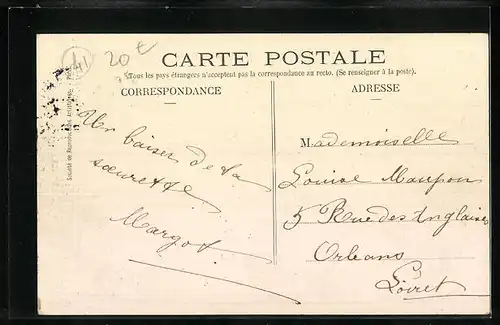 41
20 €
CARTE POSTALE
Tous les pays étrangers n'acceptent pas la correspondance au recto. (Se renseigner à la poste).
CORRESPONDANCE
ADRESSE
Un baiser de ta
sœurette
Margot
Mademoiselle
Louise Maupou
5 Rue des Anglaises
Orléans
Loiret